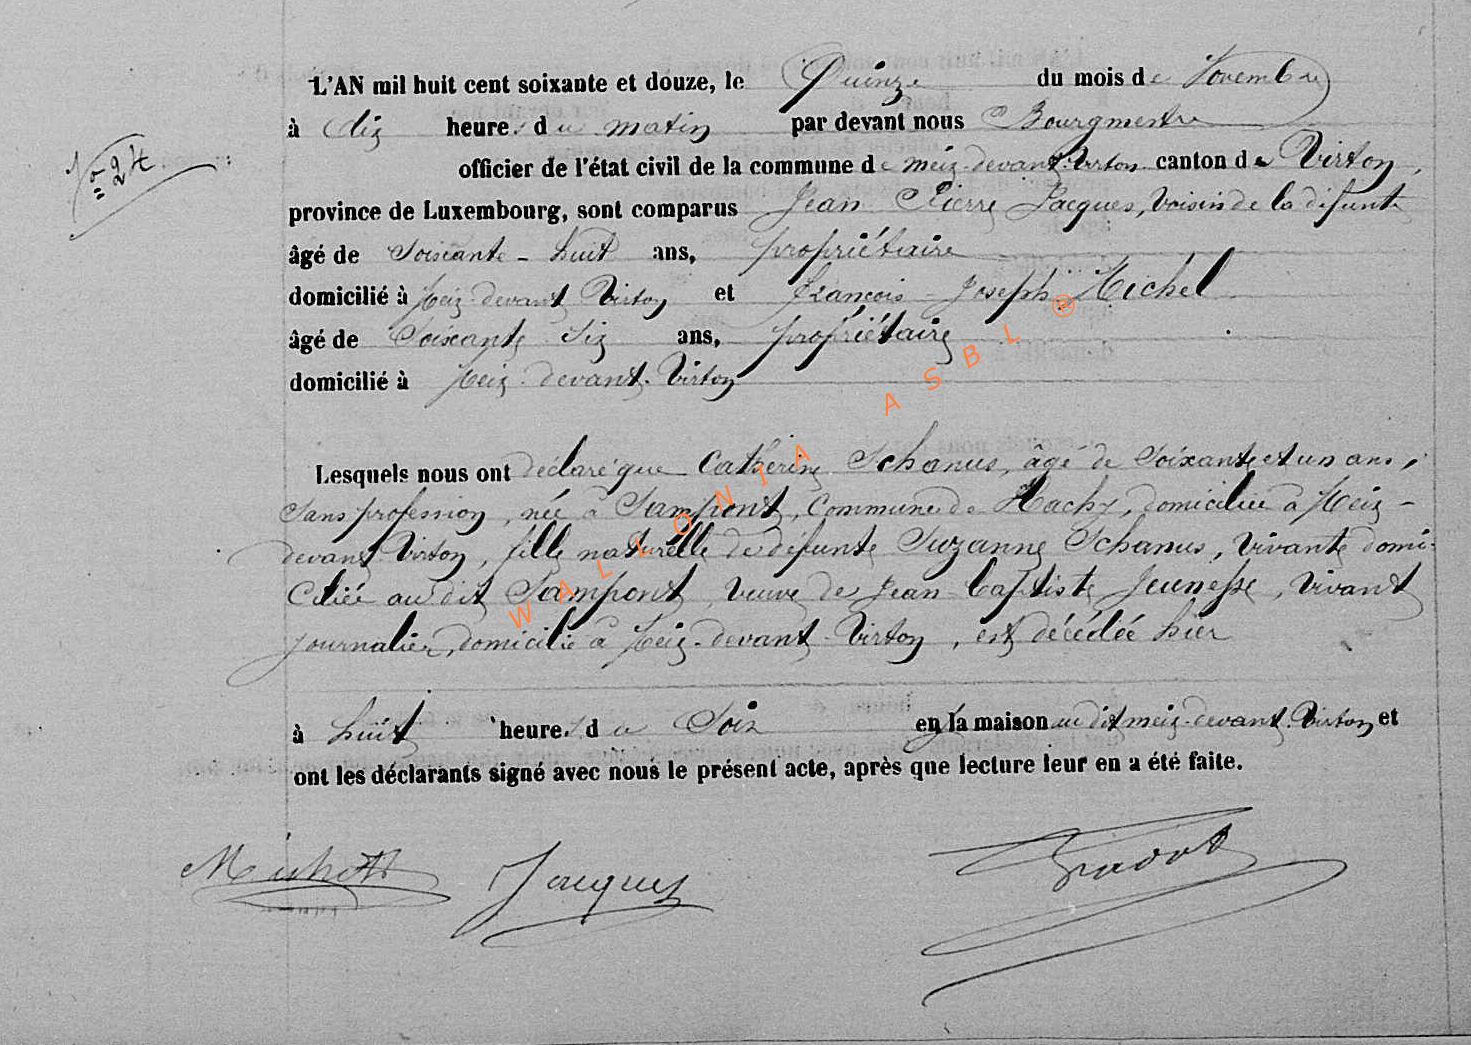 L'AN mil huit cent soixante et douze, le Quinze du mois de Novembre
à dix heures du matin par devant nous Bourgmestre
N° 24.
officier de l'état civil de la commune de Meix-devant-Virton canton de Virton,
province de Luxembourg, sont comparus Jean Pierre Jacques, voisin de la défunte
âgé de Soixante-huit ans, propriétaire
domicilié à Meix-devant Virton et François-Joseph Michel
âgé de Soixante Six ans, propriétaire
domicilié à Meix-devant-Virton
Lesquels nous ont déclaré que Catherine Schanus, âgé de Soixante et un ans,
Sans profession, née à Sampont, Commune de Hachy, domiciliée à Meix-
devant Virton, fille naturelle de défunte Suzanne Schanus, vivante domi-
ciliée au dit Sampont, veuve de Jean-Baptiste Jeunesse, vivant
journalier, domicilié à Meix-devant-Virton, est décédée hier
à huit heures du Soir en la maison au dit Meix-devant-Virton et
ont les déclarants signé avec nous le présent acte, après que lecture leur en a été faite.
Jacques
WALLONIA ASBL ®